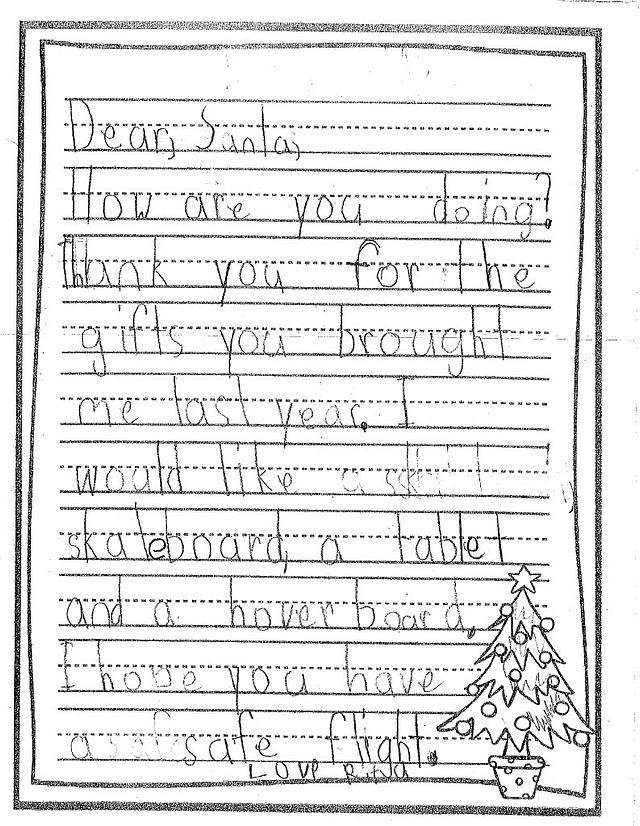 Dear, Santa,
How are you doing?
Thank you for the
gifts you brought
me last year. I
would like a
skateboard, a tablet
and a hover board.
I hope you have
a safe flight.
Love